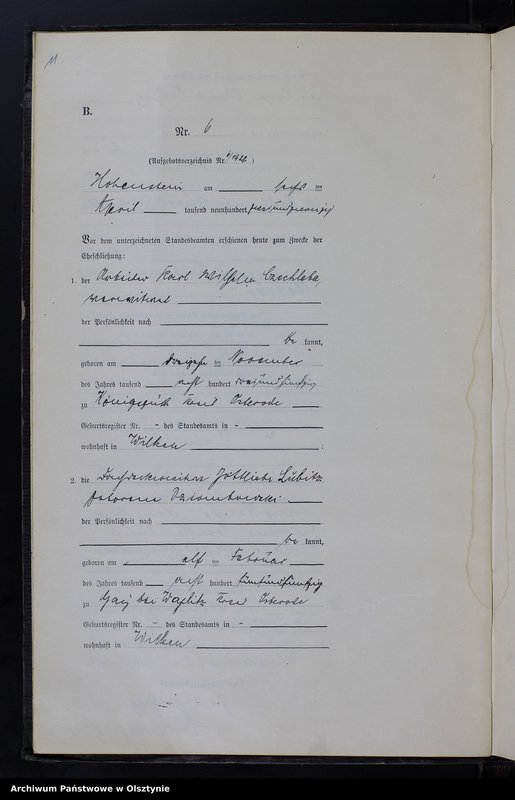 11
B.
Nr. 6
(Aufgebotsverzeichnis Nr. 4/1922)
Hohenstein am sechs ten
April tausend neunhundert
Vor dem unterzeichneten Standesbeamten erschienen heute zum Zwecke der
Eheschließung:
1. der Arbeiter Karl Wilhelm Czechleba,
verwitwet
der Persönlichkeit nach
be kannt,
geboren am November
des Jahres tausend acht hundert
zu Königsgut Kreis Osterode
Geburtsregister Nr. - des Standesamts in -
wohnhaft in Wilken ;
2. die Gottliebe Lubitz
geborene
der Persönlichkeit nach
be kannt,
geboren am elf ten Februar
des Jahres tausend acht hundert fünfundfünfzig
zu Gay bei Waplitz Kreis Osterode
Geburtsregister Nr. - des Standesamts in -
wohnhaft in Wilken
Archiwum Państwowe w Olsztynie